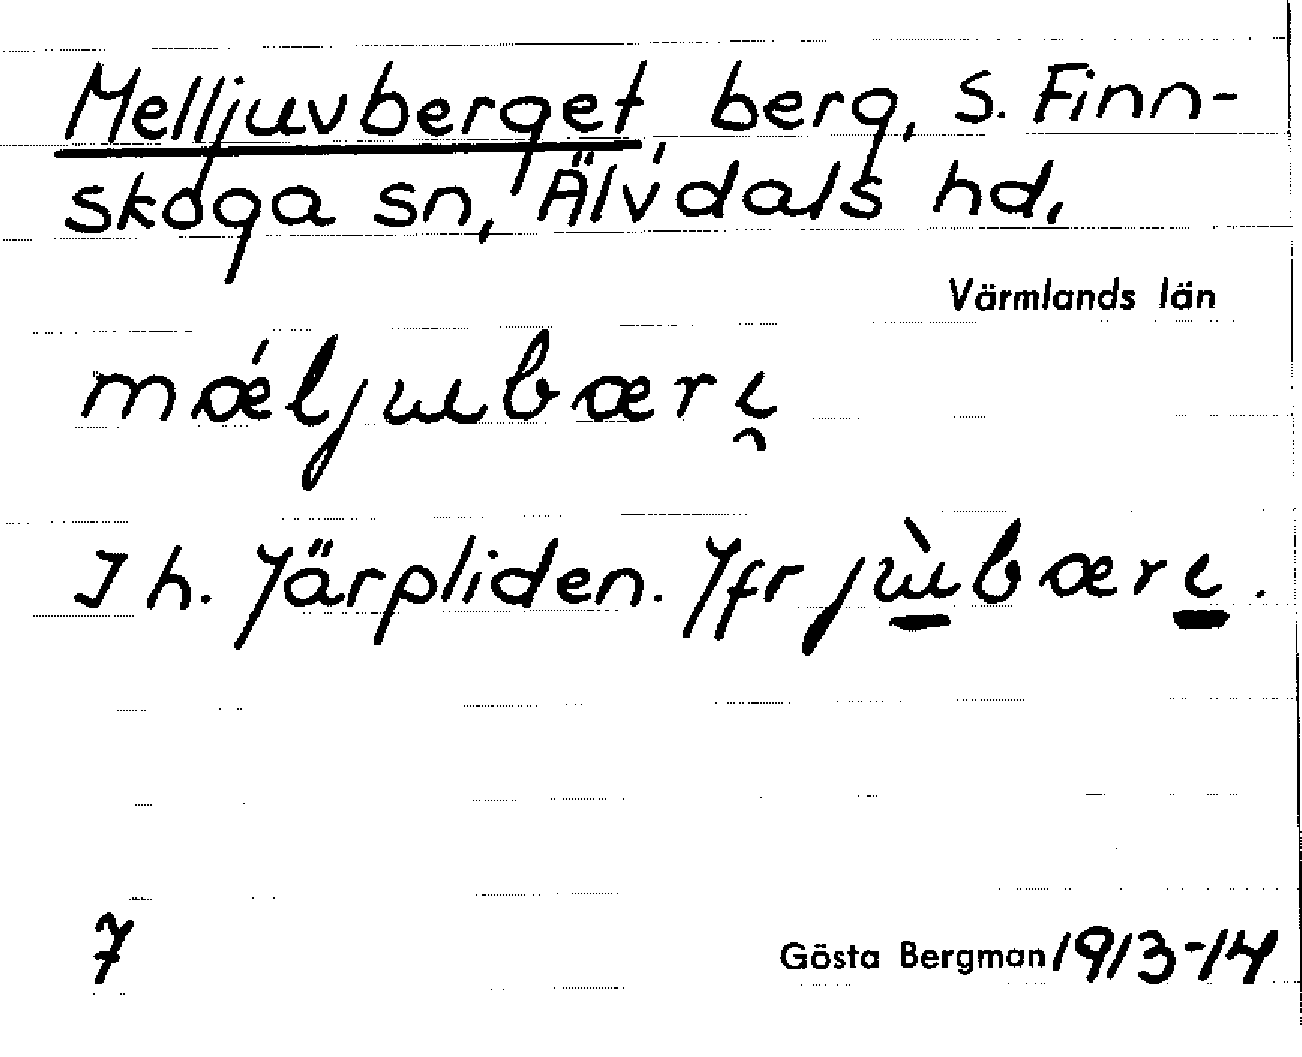 Melljuvberget, berg, S. Finn-
skoga sn, Älvdals hd,
Värmlands län
mǽljɯbærɩ̯
I h. Järpliden. Jfr jɯ̠̀bærɩ̠.
7
Gösta Bergman 1913-14